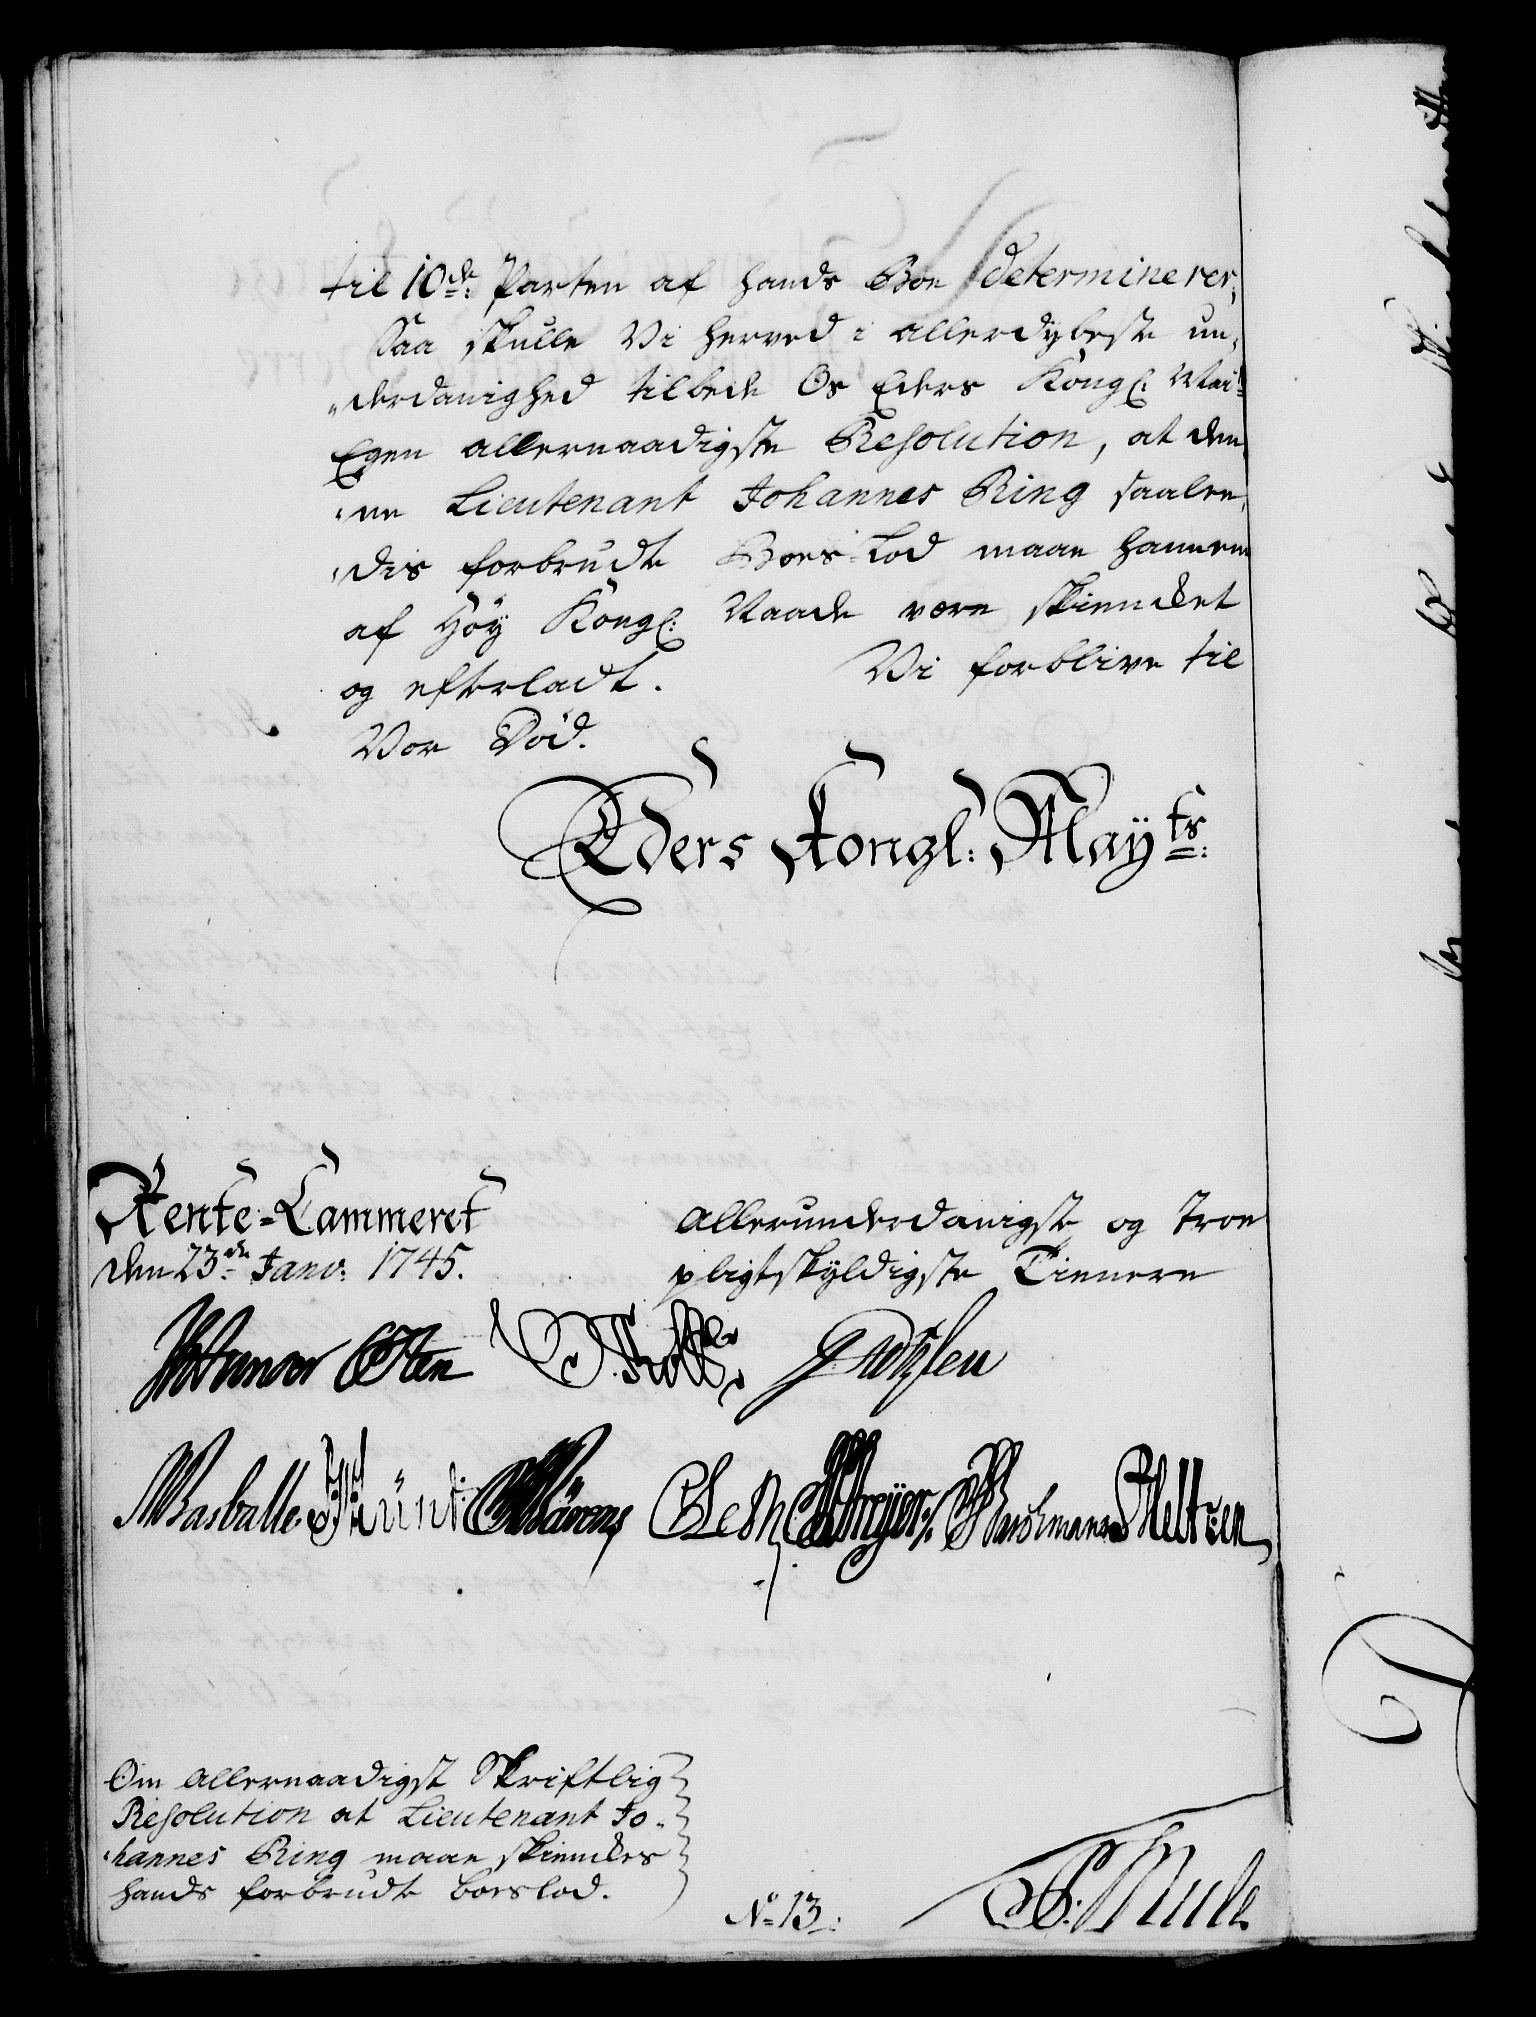 til 10de: Parten af hands Boe determinerer,
Saa skulle Vi herved i allerdybeste un-
derdanighed tilbede Os Eders Kongl: Mai:ts
Egen allernaadigste Resolution, at den-
ne Lieutenant Johannes Ring saale-
dis forbrudte Boes-Lod maae hannem
af Høy Kongl: Naade være skiencket
og efterladt. Vi forblive til
Vor Død.
Eders Kongl: Mayts:
Rente-Cammeret
den 23de Janv: 1745.
Allerunderdanigste og troe
pligtskyldigste Tienere
Om allernaadigst Skriftlig
Resolution at Lieutenant Jo-
hannes Ring maae skienckes
hands forbrudte boeslod.
No 13: